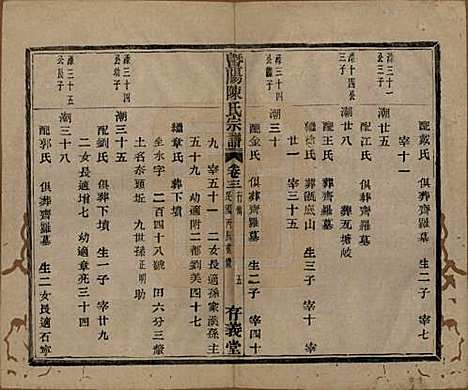 配戴氏 俱葬齊羅墓 生二子 宰七
宰十一
潮三十一公三子
潮廿五
配江氏
潮廿八 葬瓦塘歧
配王氏 葬瓶底山 生三子 宰十
徐氏 葬齊羅墓
宰三十五
潮三十四公繼子
潮三十
配金氏 俱葬齊羅墓 生二子 宰四十
暨陽陳氏宗譜 卷三 行傳 五 存義堂
九 宰五十一 二女長適
五十九 幼適附二都劉美四十七
繼章氏 葬下墳
坐水字二百四十八號 田六分三釐
土名奈頭坵 九世孫正明助
潮三十四公幼子
潮三十五
配劉氏 俱葬下墳 生一子 宰廿九
二女長適增七 幼適章亮三十四
潮三十五公長子
潮三十八
配郭氏 俱葬齊羅墓 生二女長適石宰